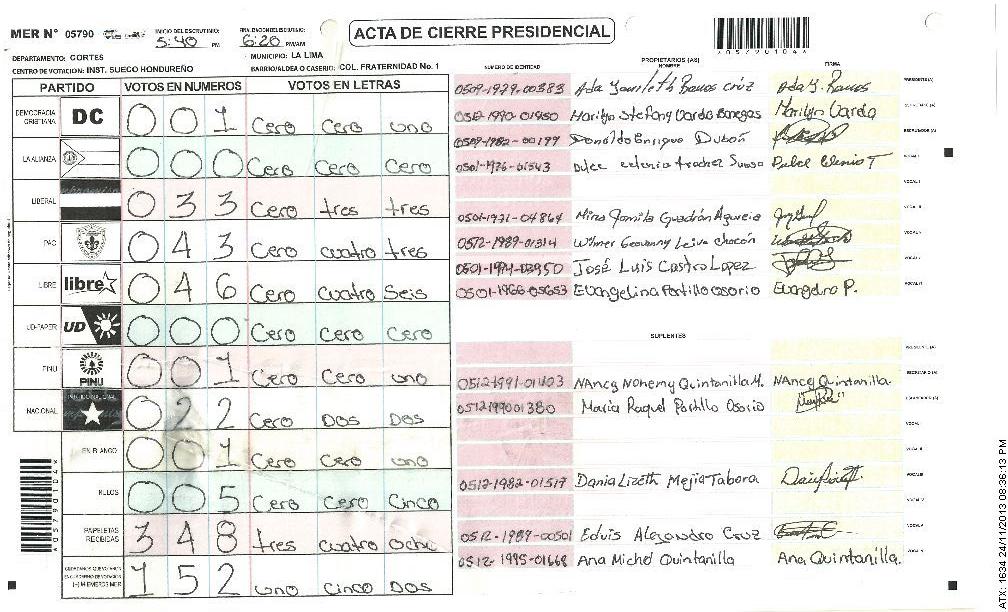 MER N° 05790
INICIO DEL ESCRUTINIO:
5:40 PM
FINALIZACION DEL ESCRUTINIO:
6:20 PM/AM
ACTA DE CIERRE PRESIDENCIAL
*05790104*
DEPARTAMENTO: CORTES
MUNICIPIO: LA LIMA
CENTRO DE VOTACION: INST. SUECO HONDUREÑO
BARRIO/ALDEA O CASERIO: COL. FRATERNIDAD No. 1
PARTIDO VOTOS EN NUMEROS VOTOS EN LETRAS
DEMOCRACIA CRISTIANA DC 0 0 1 Cero Cero uno
LA ALIANZA 0 0 0 Cero Cero Cero
LIBERAL 0 3 3 Cero tres tres
PAC 0 4 3 Cero cuatro tres
LIBRE libre 0 4 6 Cero cuatro Seis
UD-FAPER UD 0 0 0 Cero Cero Cero
PINU PINU 0 0 1 Cero Cero uno
NACIONAL 0 2 2 Cero Dos Dos
EN BLANCO 0 0 1 Cero Cero uno
NULOS 0 0 5 Cero Cero Cinco
PAPELETAS RECIBIDAS 3 4 8 tres cuatro Ocho
1 5 2 uno Cinco Dos
*05790104*
PROPIETARIOS (AS)
NUMERO DE IDENTIDAD NOMBRE FIRMA
0509-1979-00383 Ada Yamileth Ramos cruz Ada Y. Ramos PRESIDENTE(A)
0512-1990-01950 Marilyn Stefany Varda Banegas Marilyn Varda SECRETARIO (A)
0509-1982-00199 Donaldo Enrique Dubón ESCRUTADOR (A)
0501-1976-01543 Dulce VOCAL I
VOCAL II
0501-1971-04864 VOCAL III
0512-1989-01314 Wilmer Geovanny Leiva chacón
José Luis Castro Lopez
0501-1966-05653 Evangelina Portillo osorio Evangelina P.
SUPLENTES
PRESIDENTE (A)
0512-1991-01403 NAncy NOhemy Quintanilla M. NAncy Quintanilla. SECRETARIO (A)
0512199001380 Maria Raquel Portillo Osorio ESCRUTADOR (A)
0512-1982-01517 Dania Lizeth Mejia Tabora
0512-1989-00501 Edvis Alejandro Cruz
0512-1995-01668 Ana Michel Quintanilla Ana Quintanilla.
ATX: 1634 24/11/2013 08:36:13 PM